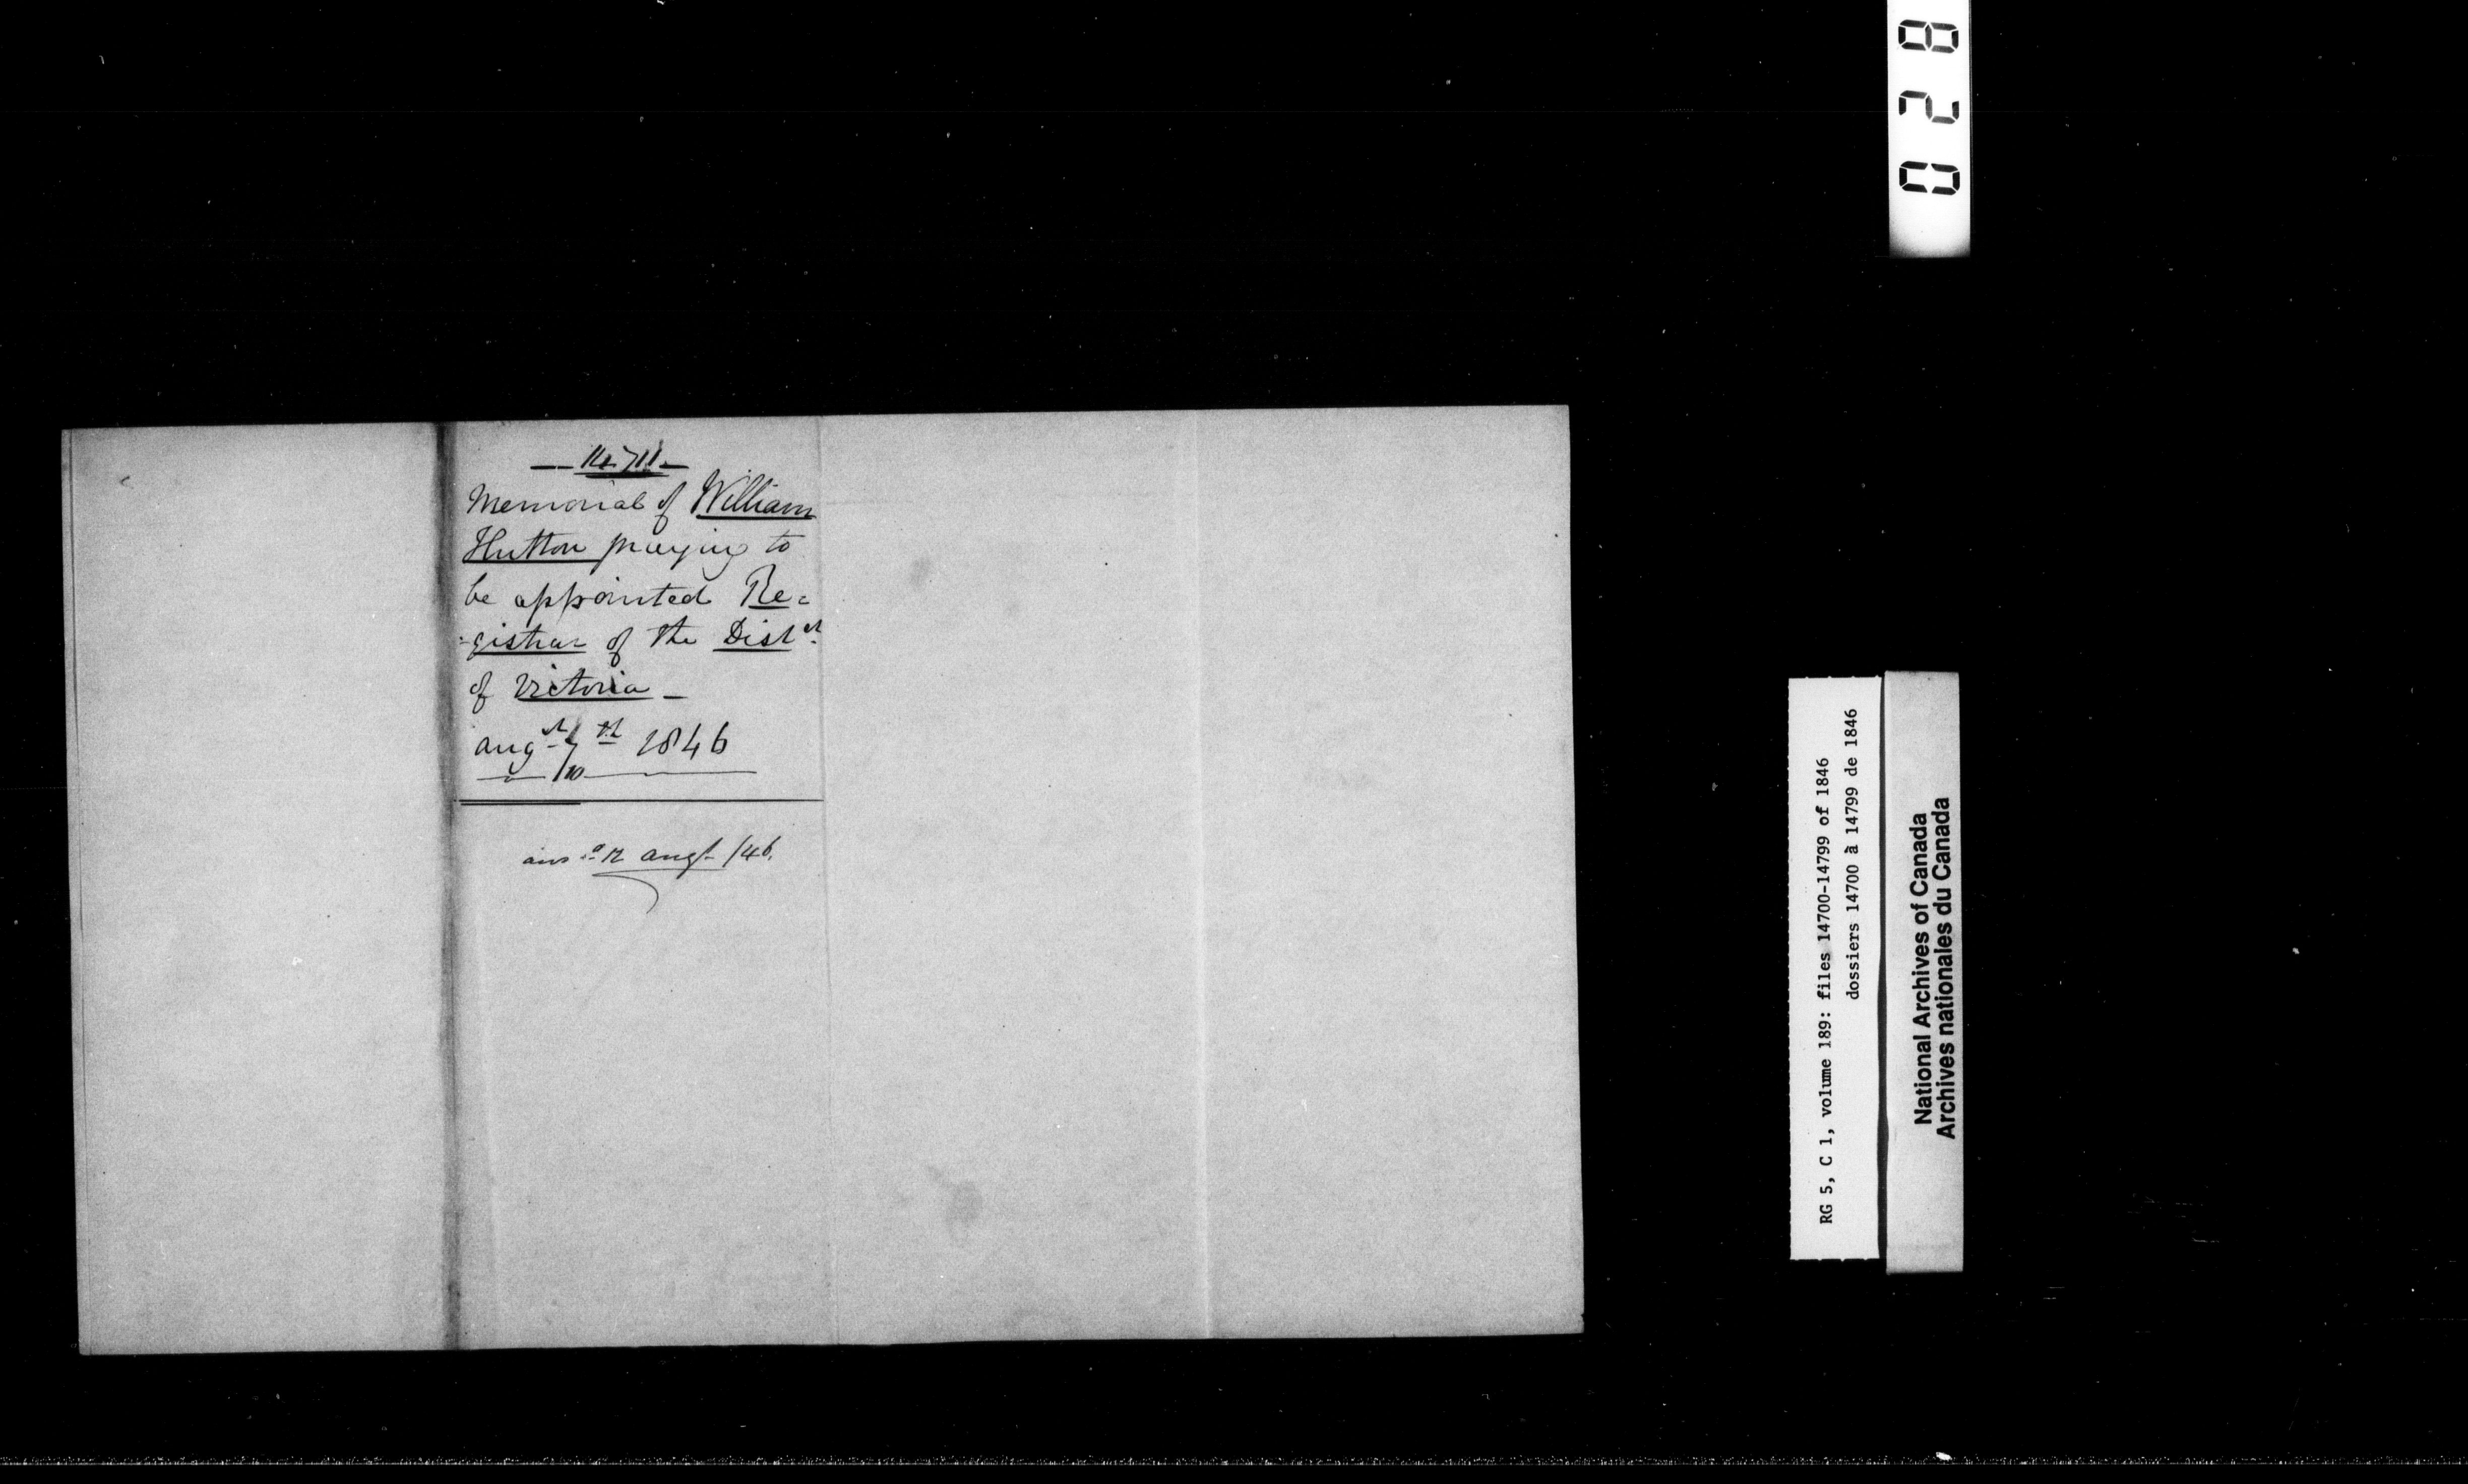 14.711
Memorial of William
Hutton praying to
be appointed Re=
=gistrar of the Dist ct.
of Victoria _
augt 7th 1846
/10
ansd 12 augt /46.
028
RG 5, C 1, volume 189: files 14700-14799 of 1846
dossiers 14700 à 14799 de 1846
National Archives of Canada
Archives nationales du Canada